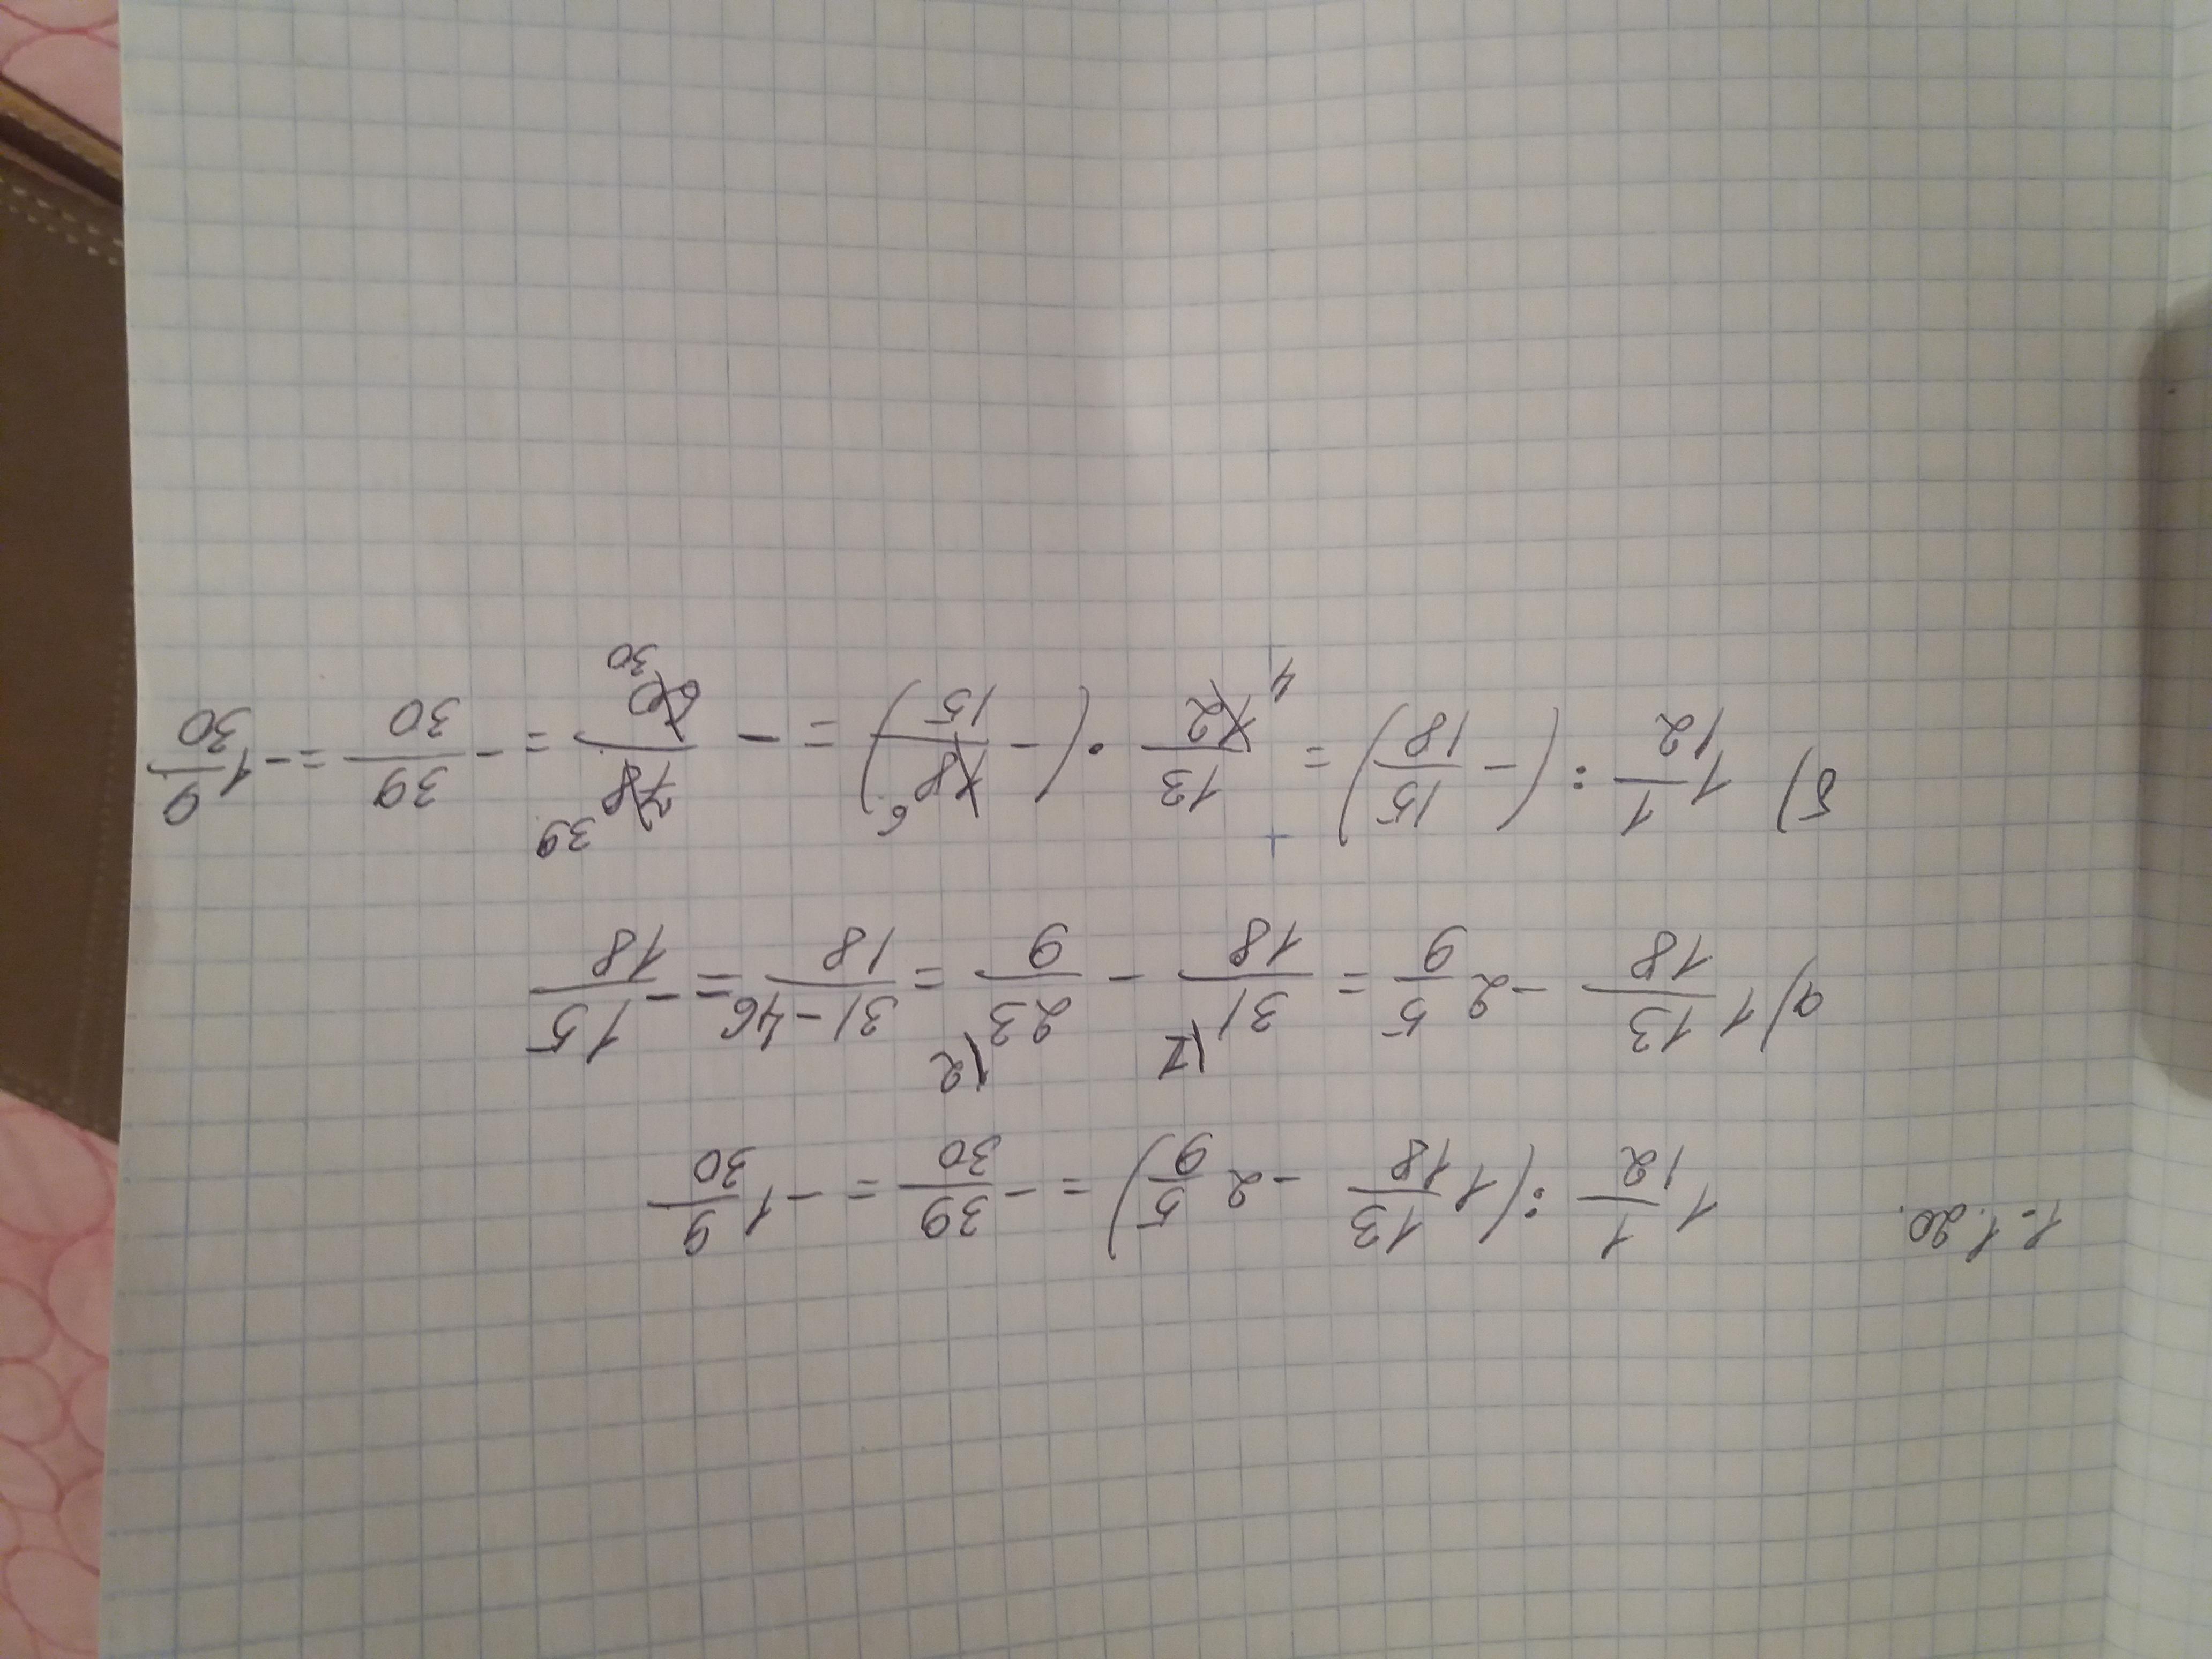 1-1.20.
1 1/12 : (1 13/18 - 2 5/9) = - 39/30 = - 1 9/30
а) 1 13/18 - 2 5/9 = 31/18 |1 - 23/9 |2 = 31-46/18 = - 15/18
б) 1 1/12 : (- 15/18) = 13/12 4 · (- 18 6/15) = - 78 39/60 30 = - 39/30 = - 1 9/30